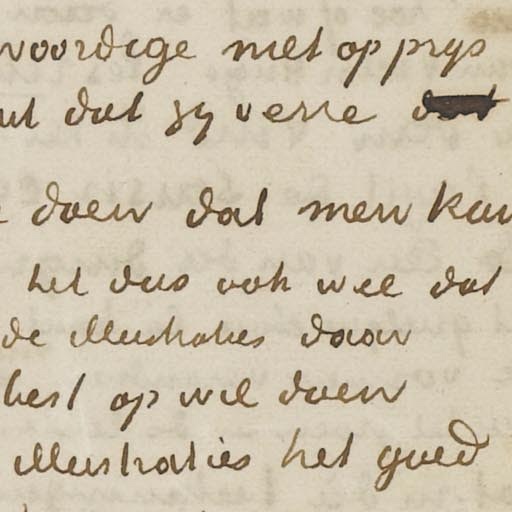 woordige niet op prijs
ut dat zy verre
doen dat men kan
het dus ook wel dat
de illustraties daar
best op wil doen
illustraties het goed